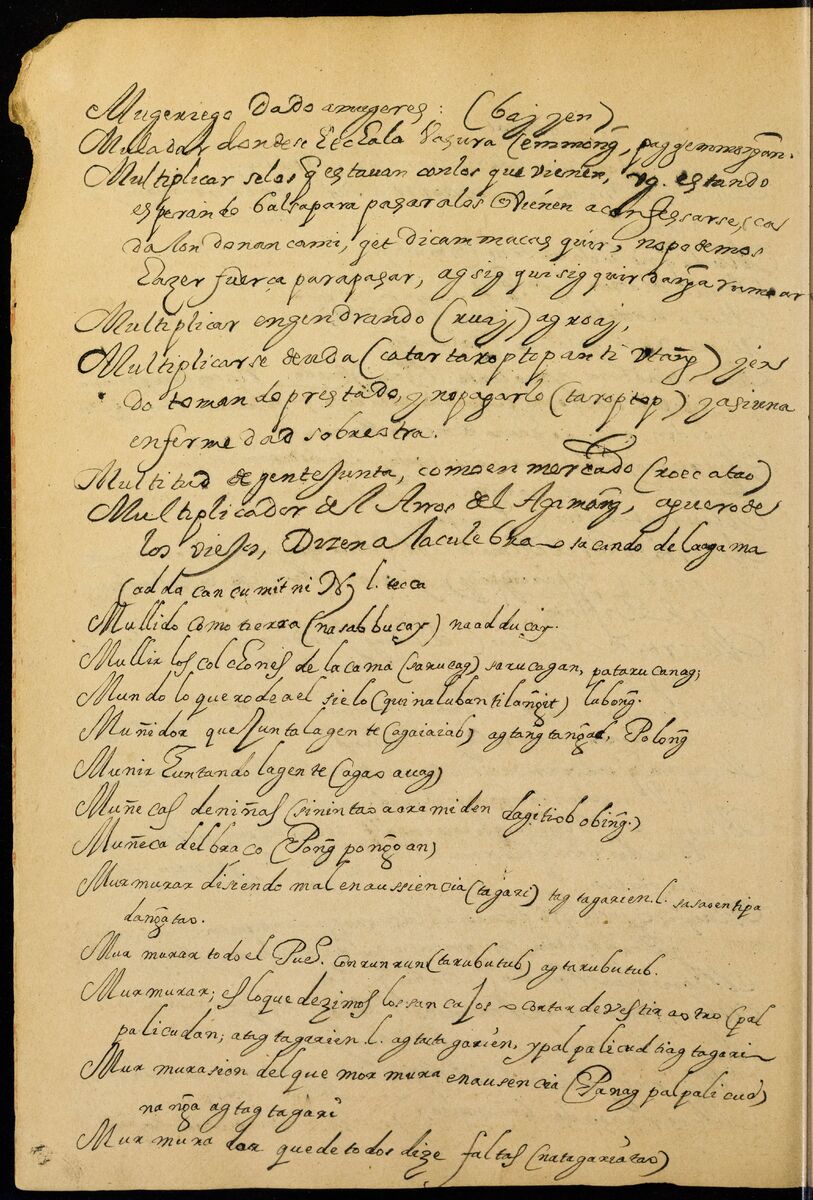 Mugeriego Dado amugeres: (baijen)
Muladar donde se Echala Vasura (emmong̃,
Multiplicar selos q̃ estavan conlos que vienen, vg. estando
esperanto balsapara pasar alos vienen aconfessarse, (cas
dalondonancami, jet dicammacas quir, nopodemos
hazer fuerça parapasar, agsig quisigquir
Multiplicar engendrando (ruaj) agroaj,
Multiplicarse deuda (catartaroptipanti utang̃) jen
do tomando prestado, ynopagarlo (taroptop) jasiuna
enfermedad sobrestra.
Multitud de gente Junta, como en mercado (roccatao)
Multiplicador del Arros del Agamang̃, aguero de
los viejos, Dizen alaculebra sacando delaagama
(adda can cumit ni N) l. tecca
Mullido como tierra (nasabbuçay) naadduçay.
Mullir los colchones de la cama (sarucag) sarucagan, patarucanag;
Mundo lo querodeael sielo (quinalubantilang̃it) lubong̃.
Muñidor que Juntalagente (agaiaiab) agtang̃tang̃ac, Polong̃
Munir Juntando lagente (agaoauag)
Muñecas deniñas (sinintao aaramiden dagitiobobing̃.)
Muñeca delbraço (Pong̃pong̃oan)
Murmurar disiendo mal enaussiencia (tagari) tagtagarien. l. sasaoentipa
dang̃atao.
Murmurar todo el Pueº. conrunrun (tarubutub) agtarubutub.
Murmurar; es loque dezimos los sancajos o cortar devestir aotro (pal
palicudan; atagtagarien l. agtactagarien, ypalpalicud tiagtagari
Murmurasion delque mormura enausencia (Panagpalpalicud)
nang̃a agtagtagari
Murmurador quedetodos dize faltas (natagariatao)